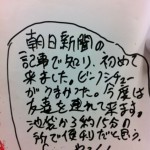 朝日新聞の
記事で知り、初めて
来ました。ビーフシチュー
がうまかった。今度は
友達を連れて来ます。
池袋から約15分の
所で便利だと思う。